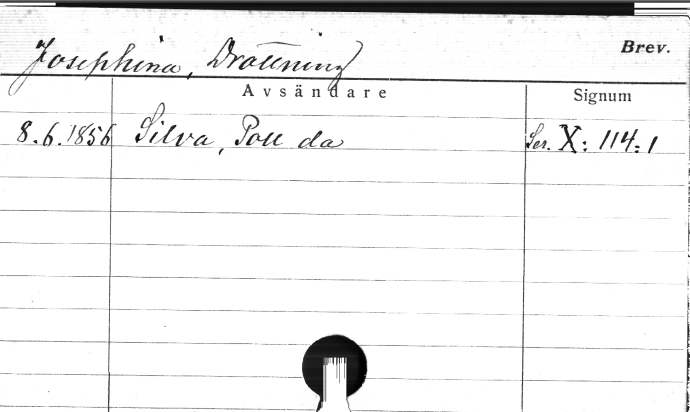 Brev.
Josephina, Drottning
Avsändare Signum
8.6.1856 Silva, Poll da Ser. X: 114:1